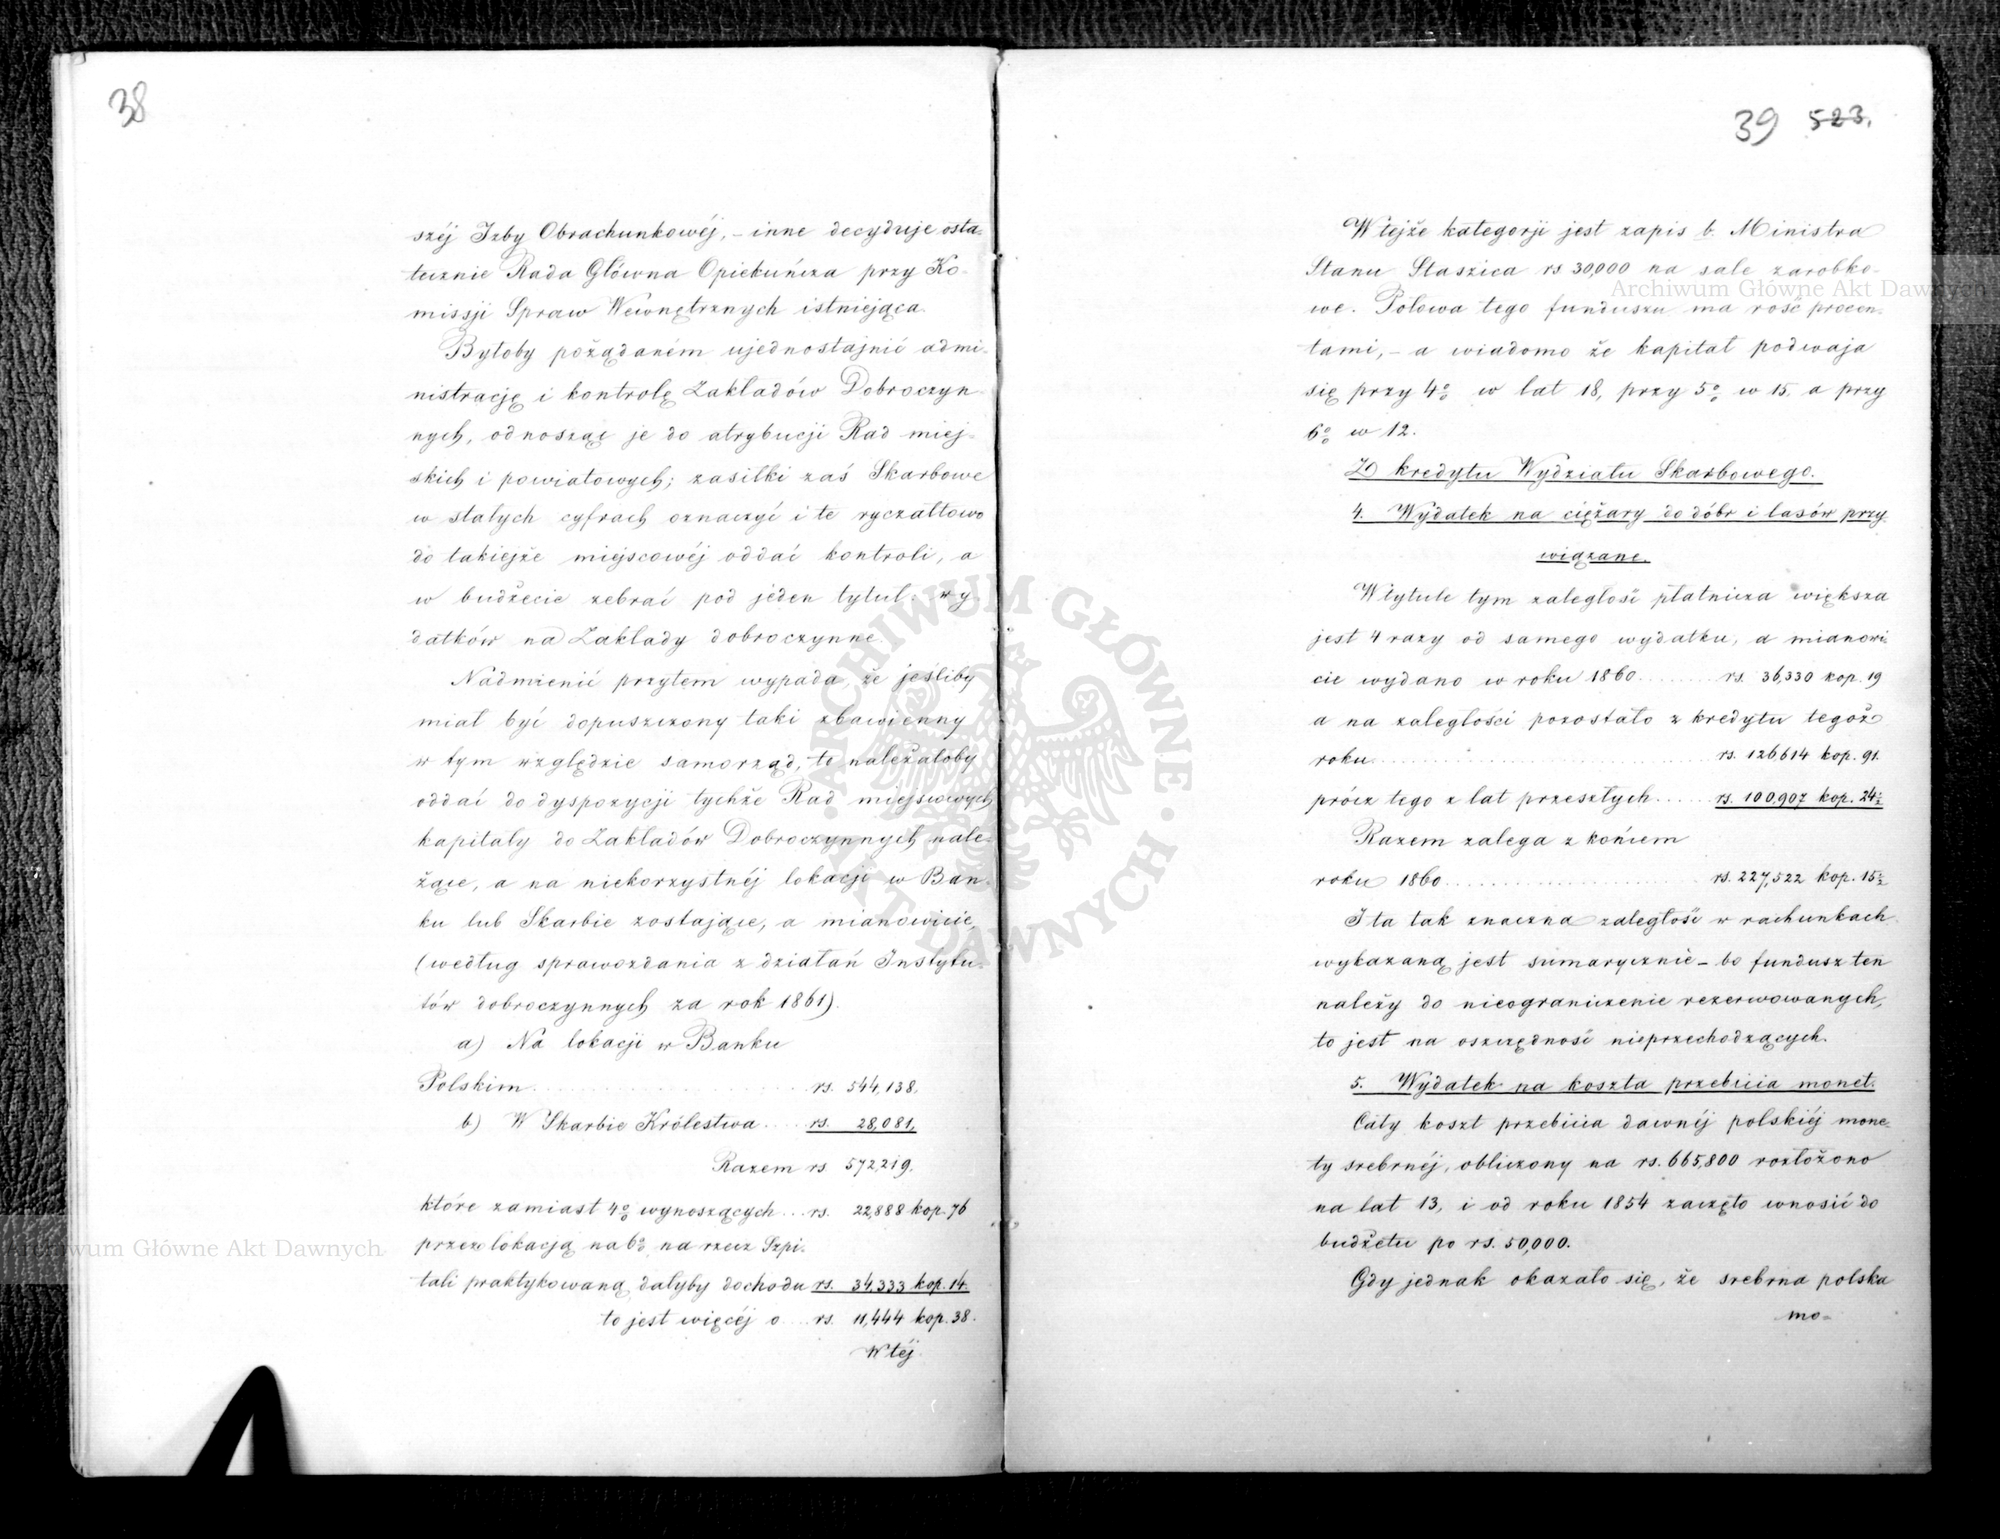 38
széj Izby Obrachunkowéj, – inne decyduje osta-
tecznie Rada Główna Opiekuńcza przy Ko-
missji Spraw Wewnętrznych istniejąca.
Byłoby pożądaném ujednostajnić admi-
nistrację i kontrolę Zakładów Dobroczyn-
nych, odnosząc je do atrybucji Rad miej-
skich i powiatowych; zasiłki zaś Skarbowe
w stałych cyfrach oznaczyć i te ryczałtowo
do takiejże miejscowéj oddać kontroli, a
w budżecie zebrać pod jeden tytuł: wy-
datków na Zakłady dobroczynne.
Nadmienić przytem wypada, że jeśliby
miał być dopuszczony taki zbawienny
w tym względzie samorząd, to należałoby
oddać do dyspozycji tychże Rad miejscowych
kapitały do Zakładów Dobroczynnych nale-
żące, a na niekorzystnéj lokacji w Ban-
ku lub Skarbie zostające, a mianowicie,
(według sprawozdania z działań Instytu-
tów dobroczynnych za rok 1861).
a) Na lokacji w Banku
Polskim . . . . . rs. 544,138.
b) W Skarbie Królestwa . . . . rs. 28,081.
Razem rs 572,219.
które zamiast 4% wynoszących . . . rs. 22,888 kop. 76
przez lokacją na 6% na rzecz Szpi-
tali praktykowaną, dałyby dochodu rs. 34,333 kop. 14.
to jest więcéj o . . . rs. 11,444 kop. 38.
W téj
39 523.
W tejże kategorji jest zapis b. Ministra
Stanu Staszica rs 30,000 na sale zarobko-
we. Połowa tego funduszu ma rość procen-
tami, – a wiadomo że kapitał podwaja
się przy 4% w lat 18, przy 5% w 15. a przy
6% w 12.
Z kredytu Wydziału Skarbowego.
4. Wydatek na ciężary do dóbr i lasów przy-
wiązane.
W tytule tym zaległość płatnicza większa
jest 4 razy od samego wydatku, a mianowi-
cie wydano w roku 1860 . . . . . rs. 36,330 kop. 19
a na zaległości pozostało z kredytu tegoż
roku . . . . . rs. 126,614 kop. 91.
prócz tego z lat przeszłych . . . . . rs. 100,907 kop. 24½
Razem zalega z końcem
roku 1860 . . . . . rs. 227,522 kop. 15½
I ta tak znaczna zaległość w rachunkach
wykazaną jest sumarycznie – bo fundusz ten
należy do nieograniczenie rezerwowanych,
to jest na oszczędność nieprzechodzących.
5. Wydatek na koszta przebicia monet.
Cały koszt przebicia dawnéj polskiéj mone-
ty srebrnéj, obliczony na rs. 665,800 rozłożono
na lat 13, i od roku 1854 zaczęto wnosić do
budżetu po rs. 50,000.
Gdy jednak okazało się, że srebrna polska
mo-
ARCHIWUM GŁÓWNE AKT DAWNYCH
Archiwum Główne Akt Dawnych
Archiwum Główne Akt Dawnych